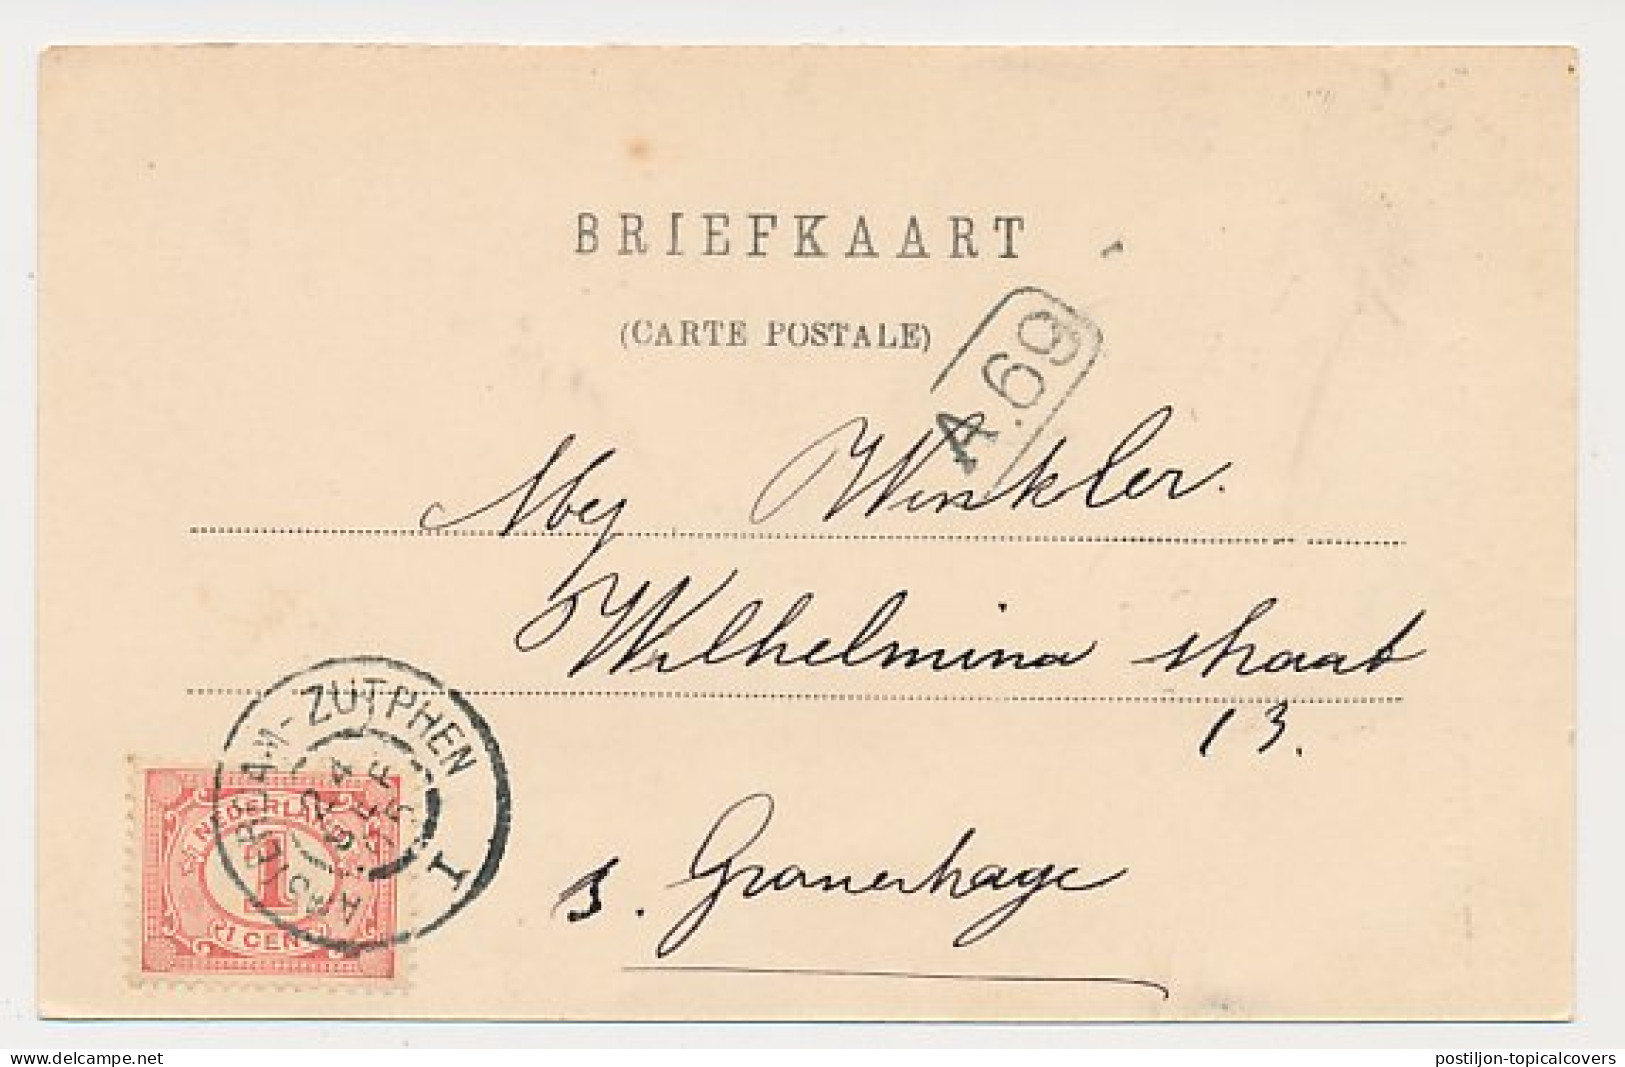 BRIEFKAART
(CARTE POSTALE)
A.69
Mej Winkler.
Wilhelmina straat
13.
s. Gravenhage
AMSTERDAM-ZUTPHEN
I
24
SEP
NEDERLAND
1
(1 CENT)
delcampe.net
postiljon-topicalcovers